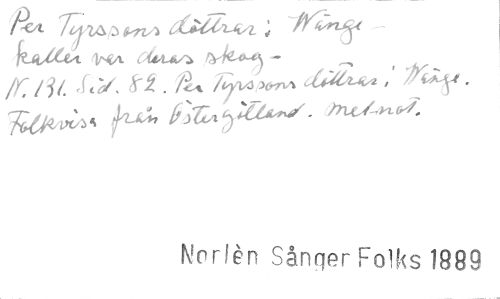 Per Tyrssons döttrar i Wänge –
kaller var deras skog –
N. 131. Sid. 82. Per Tyrssons döttrar i Wänge.
Folkvisa från Östergötland. mel. not.
Norlèn Sånger Folks 1889